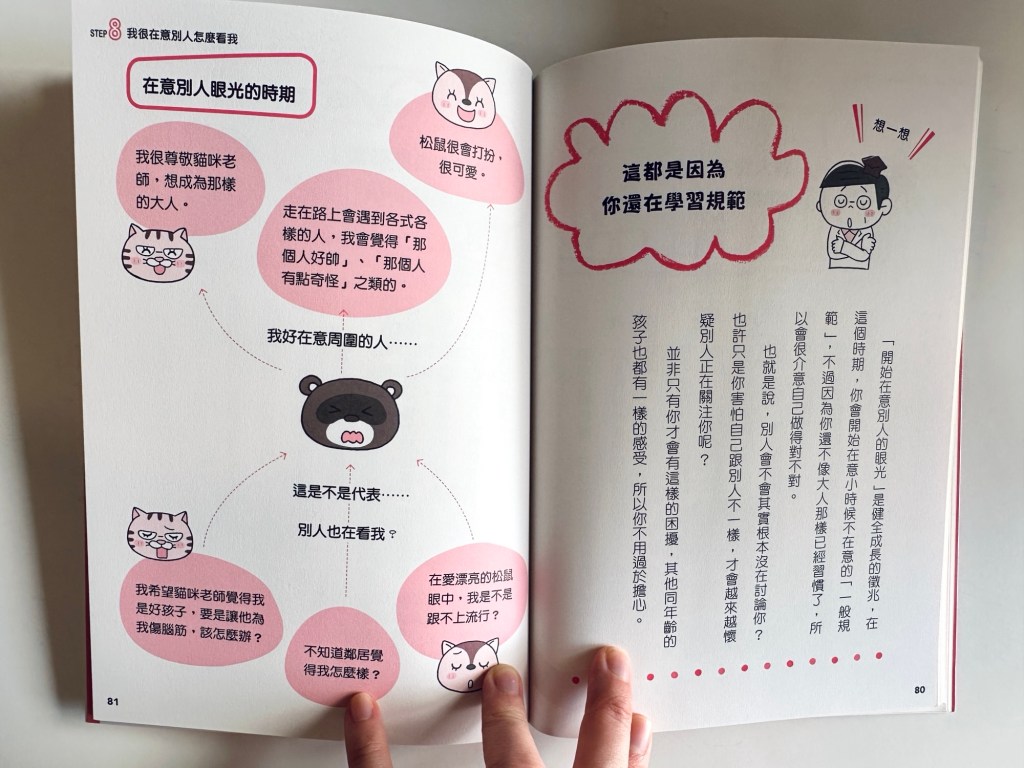 想一想
這都是因為
你還在學習規範
「開始在意別人的眼光」是健全成長的徵兆，在
這個時期，你會開始在意小時候不在意的「一般規
範」，不過因為你還不像大人那樣已經習慣了，所
以會很介意自己做得對不對。
也就是說，別人會不會其實根本沒在討論你？
也許只是你害怕自己跟別人不一樣，才會越來越懷
疑別人正在關注你呢？
並非只有你才會有這樣的困擾，其他同年齡的
孩子也都有一樣的感受，所以你不用過於擔心。
80
STEP 8 我很在意別人怎麼看我
在意別人眼光的時期
松鼠很會打扮、
很可愛。
我很尊敬貓咪老
師，想成為那樣
的大人。
走在路上會遇到各式各
樣的人，我會覺得「那
個人好帥」、「那個人
有點奇怪」之類的。
我好在意周圍的人……
這是不是代表……
別人也在看我？
在愛漂亮的松鼠
眼中，我是不是
跟不上流行？
我希望貓咪老師覺得我
是好孩子，要是讓他為
我傷腦筋，該怎麼辦？
不知道鄰居覺
得我怎麼樣？
81